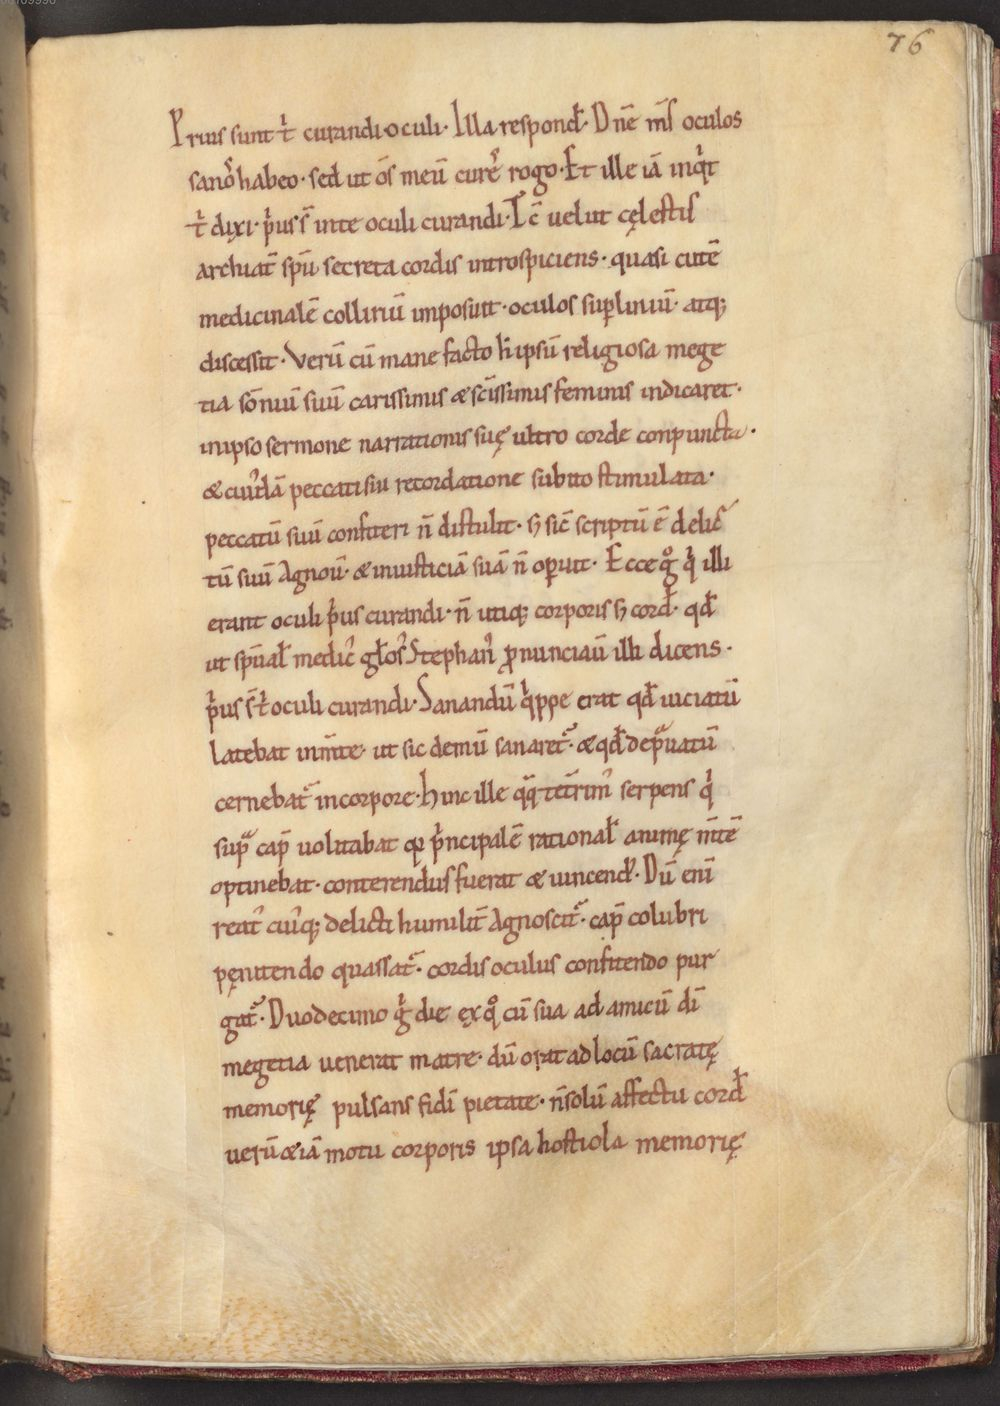 76
Prius sunt t̄ curandi oculi· Illa respond̄· Dn̄e m̄s oculos
sanoˢ habeo· sed ut ōs meū cureˢ rogo· Et ille iā inqⁱt
tⁱ dixi· pⁱus s̄ inte oculi curandi· Tc̄ uelut cęlestis
archiat̄ sp̄u secreta cordis introspiciens· quasi cutē
medicinalē colliriū imposuit· oculos suꝑliniuit· atq;
discessit· Verū cū mane facto h̄ ipsū religiosa mege
tia sōniū suū carissimis & sc̄issimis feminis indicaret·
inipso sermone narrationis suę ultro corde conpuncta·
& cuiꝰdā peccati sui recordatione subito stimulata·
peccatū suū confiteri n̄ distulit· ꞩ sic̄ scriptū ē delic̄
tū suū Agnouit· & iniusticiā suā n̄ oꝑuit· Ecce gº qⁱ illi
erant oculi pⁱus curandi· n̄ utiq; corporis ꞩ cord̄· qd̄
ut sp̄ual̄ medicꝰ gl̄osꝰ Stephanꝰ ꝓnunciauit illi dicens·
pⁱus s̄ tⁱ oculi curandi· Sanandū qⁱppe erat qd̄ uiciatū
latebat in m̄te· ut sic demū sanaret᷑· & qd̄ depᵃuatū
cernebat᷑ in corpore· hinc ille qᵃqᵃ tet̄rimꝰ serpens qⁱ
supᵃ cap̄ uolitabat qꝛ pⁱncipalē rational̄ animę m̄tē
optinebat· conterendus fuerat & uincendꝰ· Dū eni̅
reatꝰ cuiꝰq; delicti humilit̄ Agnoscit᷑· cap̄ colubri
pęnitendo quassat᷑· cordis oculus confitendo pur
gat᷑· Duodecimo gⁱ die ęx qº cū sua ad amicū dī
megetia uenerat matre· dū orat ad locū sacratę
memorię pulsans fidī pietate· n̄ solū affectu cord̄
uerū & iā motu corporis ipsa hostiola memorię